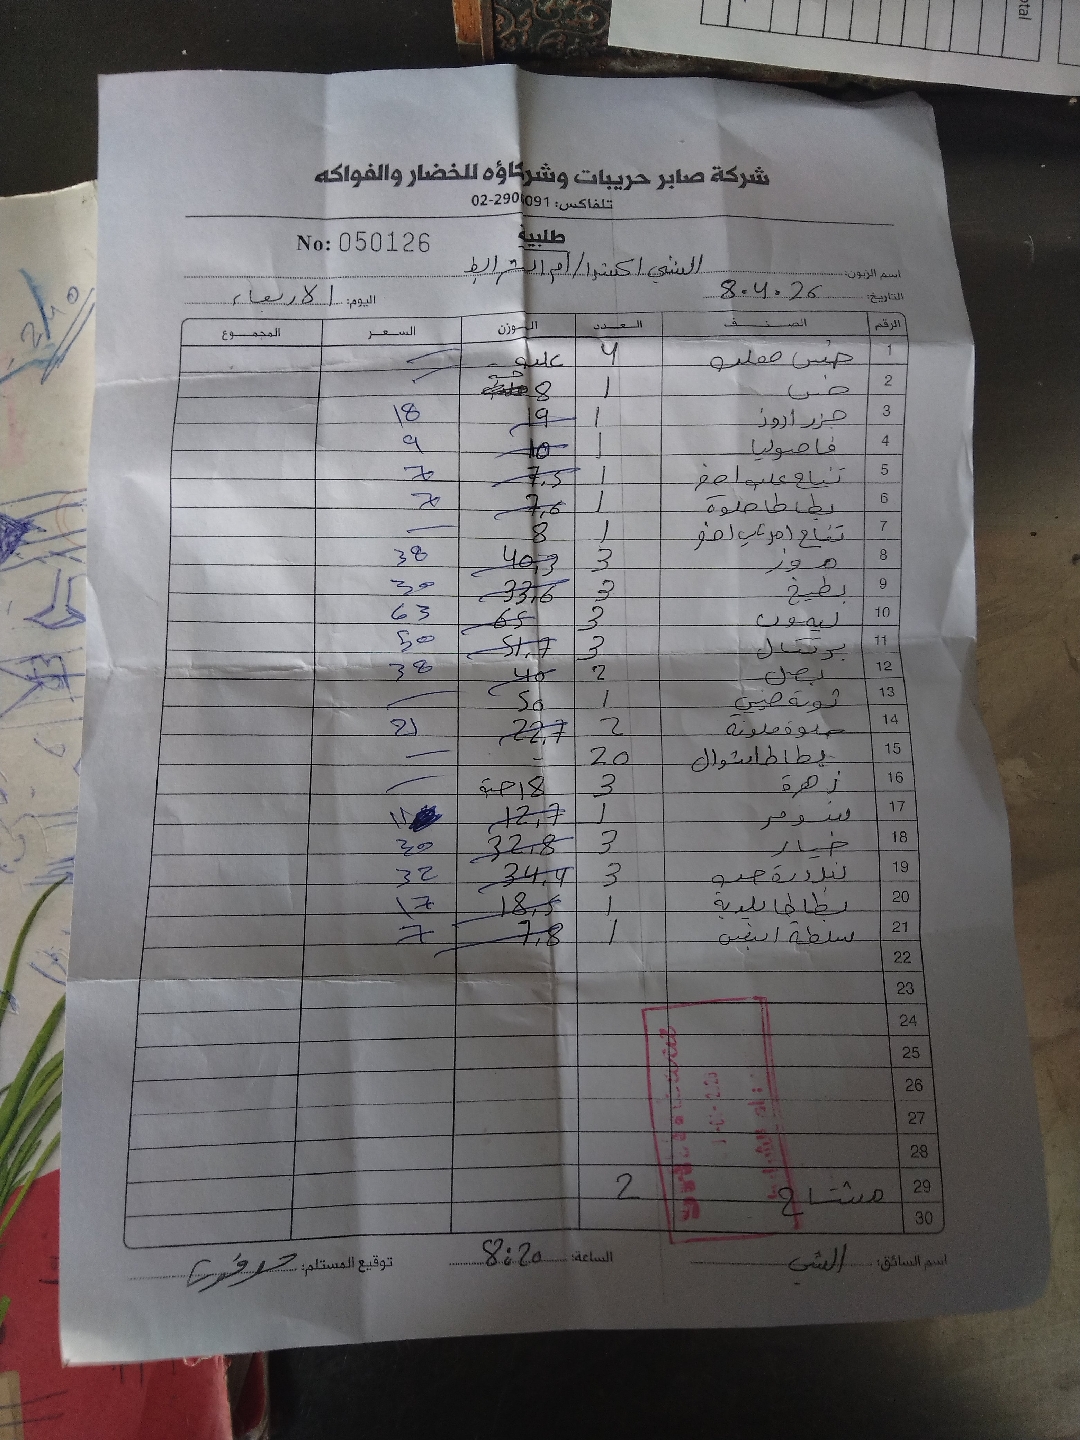 شركة صابر حريبات وشركاؤه للخضار والفواكه
تلفاكس: 02-2906091
طلبية
No: 050126
اسم الزبون: الشني اكسترا/أم الشرايط
التاريخ: 8.4.26 اليوم: الاربعاء
الرقم الصنف العدد الوزن السعر المجموع
1 خس معلب 4 علب —
2 خس 1 8 حبة —
3 جزر أروز 1 19 18
4 فاصوليا 1 10 9
5 تفاح علب اخضر 1 7,5 7
6 بطاطا حلوة 1 7,6 7
7 تفاح اخضر 1 8 —
8 موز 3 40,3 38
9 بطيخ 3 33,6 30
10 ليمون 3 65 63
11 برتقال 3 51,7 50
12 بصل 2 40 38
13 1 50 —
14 حلوة ملونة 2 22,7 21
15 بطاطا شوال 20 - —
16 زهرة 3 18 حبة —
17 1 12,7 11
18 خيار 3 32,8 30
19 بندورة حب 3 34,4 32
20 بطاطا بلدية 1 18,5 17
21 سلطة 1 7,8 7
22
23
24
25
26
27
28
29 مشتاح 2
30
اسم السائق: الشني الساعة: 8:20 توقيع المستلم: